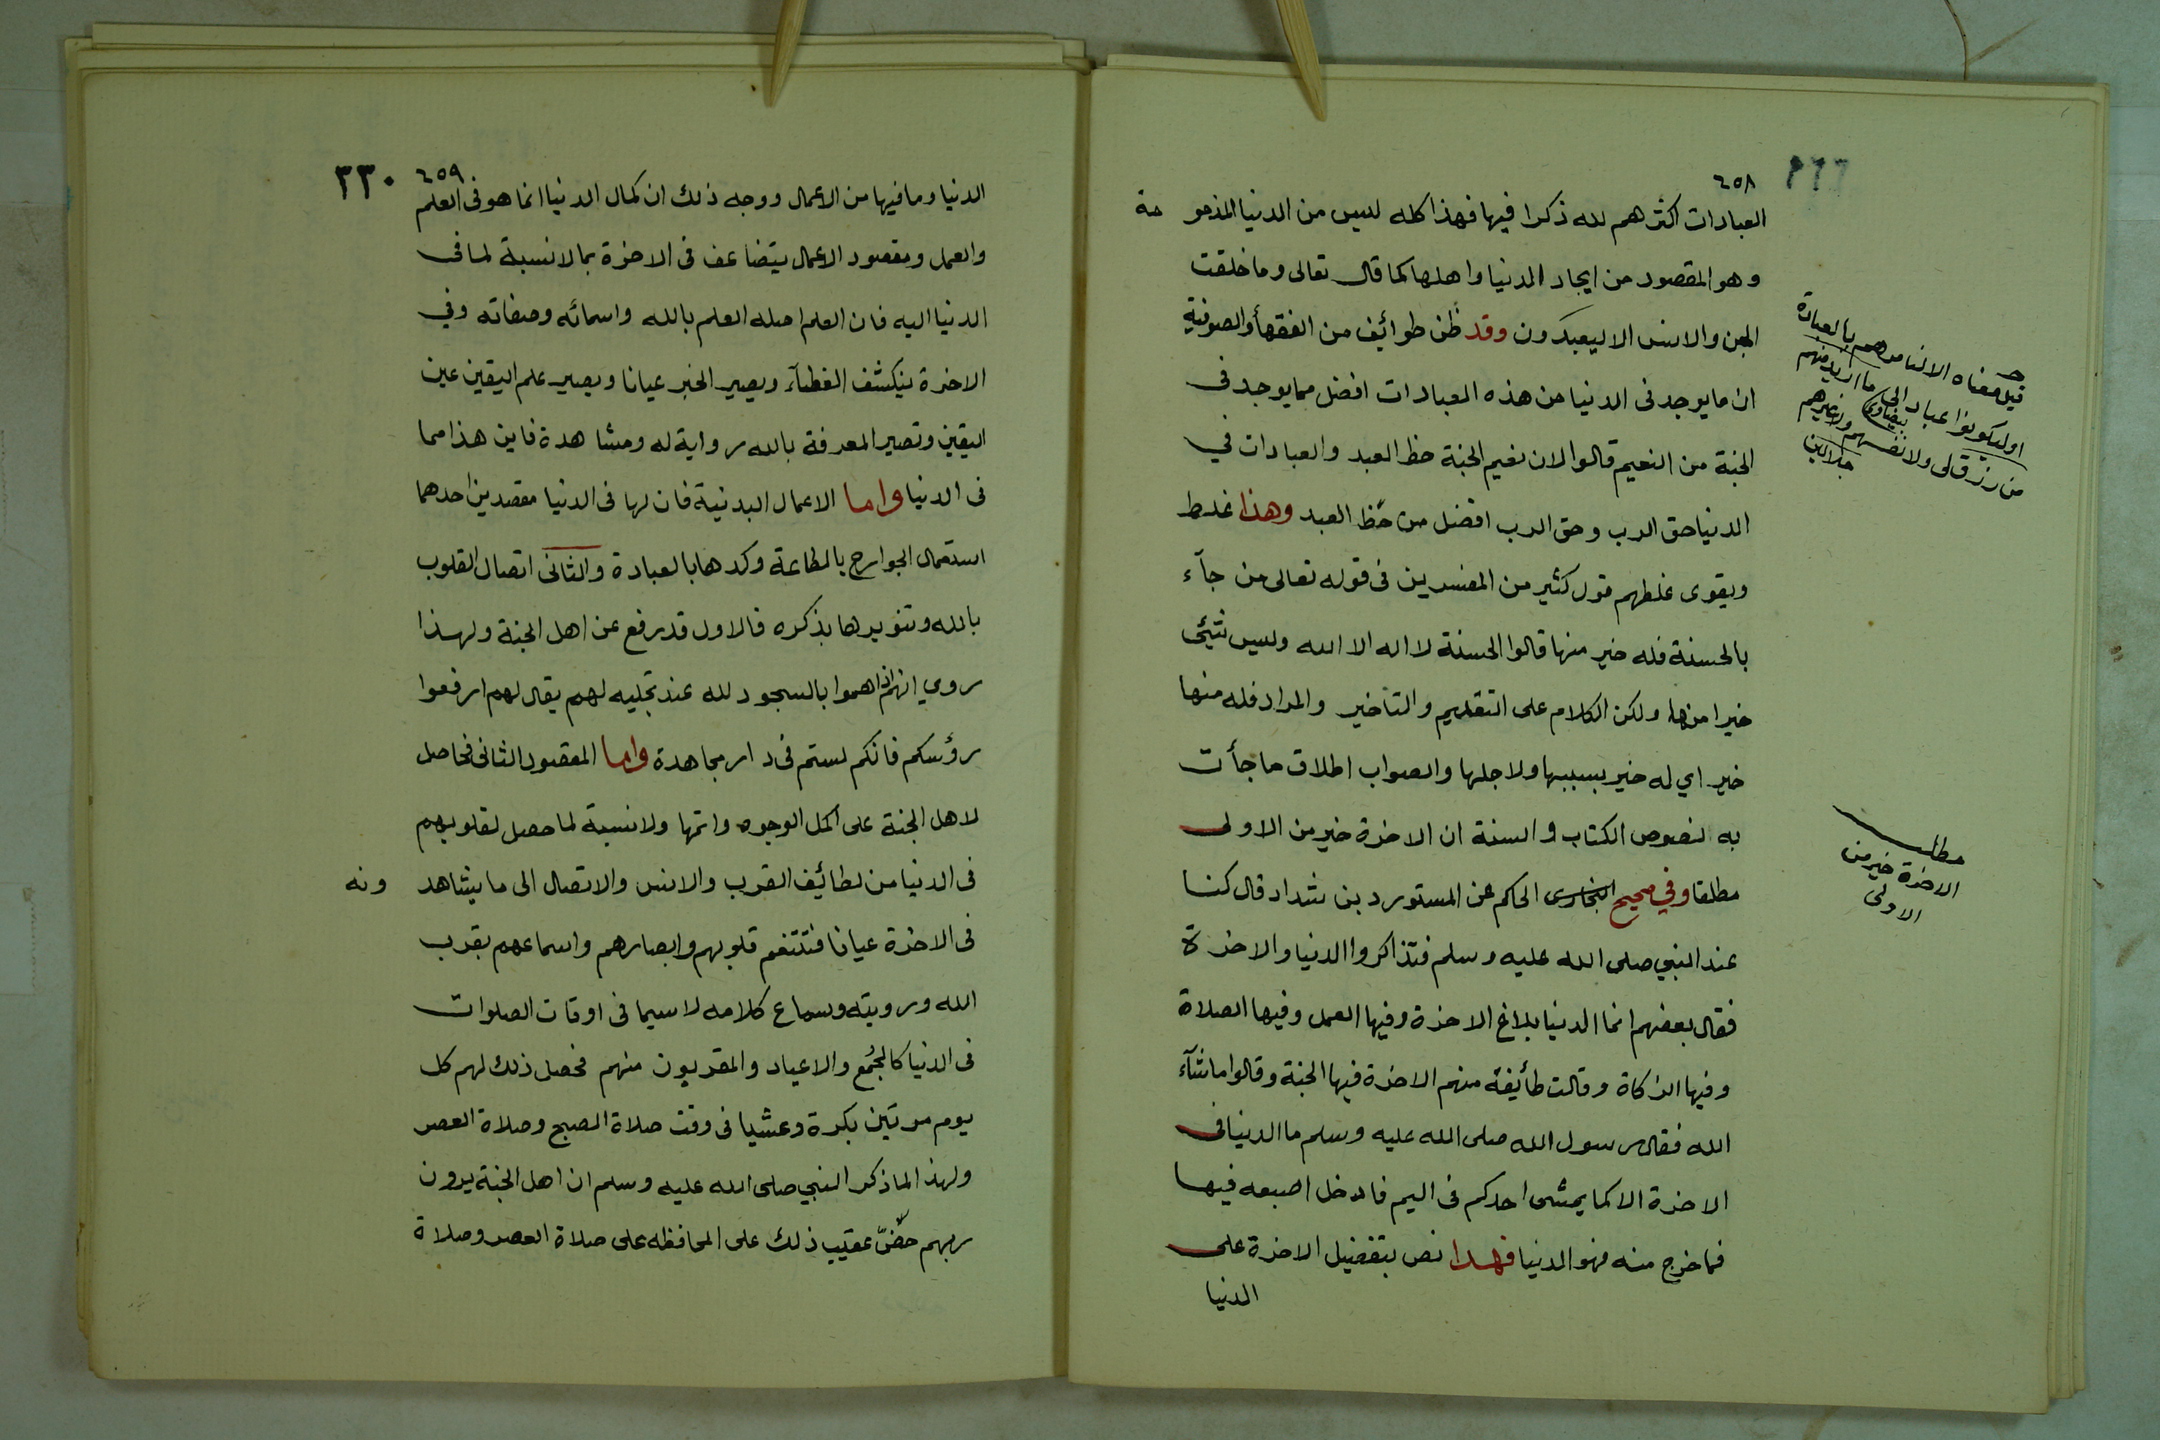 ٦٥٨
العبادات اكثرهم لله ذكرا فيها فهذا كله ليس من الدنيا المذمو مة
وهو المقصود من ايجاد الدنيا واهلها كما قال تعالى وما خلقت
الجن والانس الا ليعبدون وقد ظن طوائف من الفقهأ والصوفية
ان ما يوجد فى الدنيا من هذه العبادات افضل مما يوجد فى
الجنة من النعيم قالوا لان نعيم الجنة حظ العبد والعبادات في
الدنيا حق الرب وحق الرب افضل من حظ العبد وهذا غلط
ويقوى غلطهم قول كثير من المفسرين فى قوله تعالى من جآء
بالحسنة فله خير منها قالوا الحسنة لا اله الا الله وليس شيئ
خيرا منها ولكن الكلام على التقديم والتأخير والمراد فله منها
خير اي له خير بسببها ولاجلها والصواب اطلاق ما جأت
به نصوص الكتاب والسنة ان الاخرة خير من الاولى
مطلقا وفي صحيح البخارى الحاكم عن المستورد بن شداد قال كنا
عند النبي صلى الله عليه وسلم فتذاكروا الدنيا والاخرة
فقال بعضهم انما الدنيا بلاغ الاخرة وفيها العمل وفيها الصلاة
وفيها الزكاة وقالت طأيفة منهم الاخرة فيها الجنة وقالوا ما شآء
الله فقال رسول الله صلى الله عليه وسلم ما الدنيا فى
الاخرة الا كما يمشى احدكم فى اليم فادخل اصبعه فيها
فما خرج منه فهو الدنيا فهذا نص بتفضيل الاخرة على
الدنيا
قيل معناه الا لنامرهم بالعبادة
او ليكونوا عبادا لى ما اريد منهم
بيضاوى
من رزق لى ولا نفسهم ولا غيرهم
جلالين
مطلب
الاخرة خير من
الاولى
٦٥٩
٣٣٠
الدنيا وما فيها من الاعمال ووجه ذلك ان كمال الدنيا انما هو فى العلم
والعمل ومقصود الاعمال يتضاعف فى الاخرة بما لا نسبة لما فى
الدنيا اليه فان العلم اصله العلم بالله واسمائه وصفاته وفي
الاخرة ينكشف الغطآء ويصير الخبر عيانا ويصير علم اليقين عين
اليقين وتصير المعرفة بالله رواية له ومشاهدة فاين هذا مما
فى الدنيا واما الاعمال البدنية فان لها فى الدنيا مقصدين احدهما
استعمال الجوارح بالطاعة وكدها بالعبادة والثانى اتصال القلوب
بالله وتنويرها بذكره فالاول قد رفع عن اهل الجنة ولهذا
روي انهم اذا هموا بالسجود لله عند تجليه لهم يقال لهم ارفعوا
رؤسكم فانكم لستم فى دار مجاهدة واما المقصود الثانى فحاصل
لاهل الجنة على اكمل الوجوه واتمها ولا نسبة لما حصل لقلوبهم
فى الدنيا من لطائيف القرب والانس والاتصال الى ما يشاهد ونه
فى الاخرة عيانا فتتنعم قلوبهم وابصارهم واسماعهم بقرب
الله ورويته وسماع كلامه لا سيما فى اوقات الصلوات
فى الدنيا كالجُمع والاعياد والمقربون منهم فحصل ذلك لهم كل
يوم مرتين بكرة وعشيا فى وقت صلاة الصبح وصلاة العصر
ولهذا لما ذكر النبي صلى الله عليه وسلم ان اهل الجنة يرون
ربهم حضّ عقيب ذلك على المحافظه على صلاة العصر وصلاة